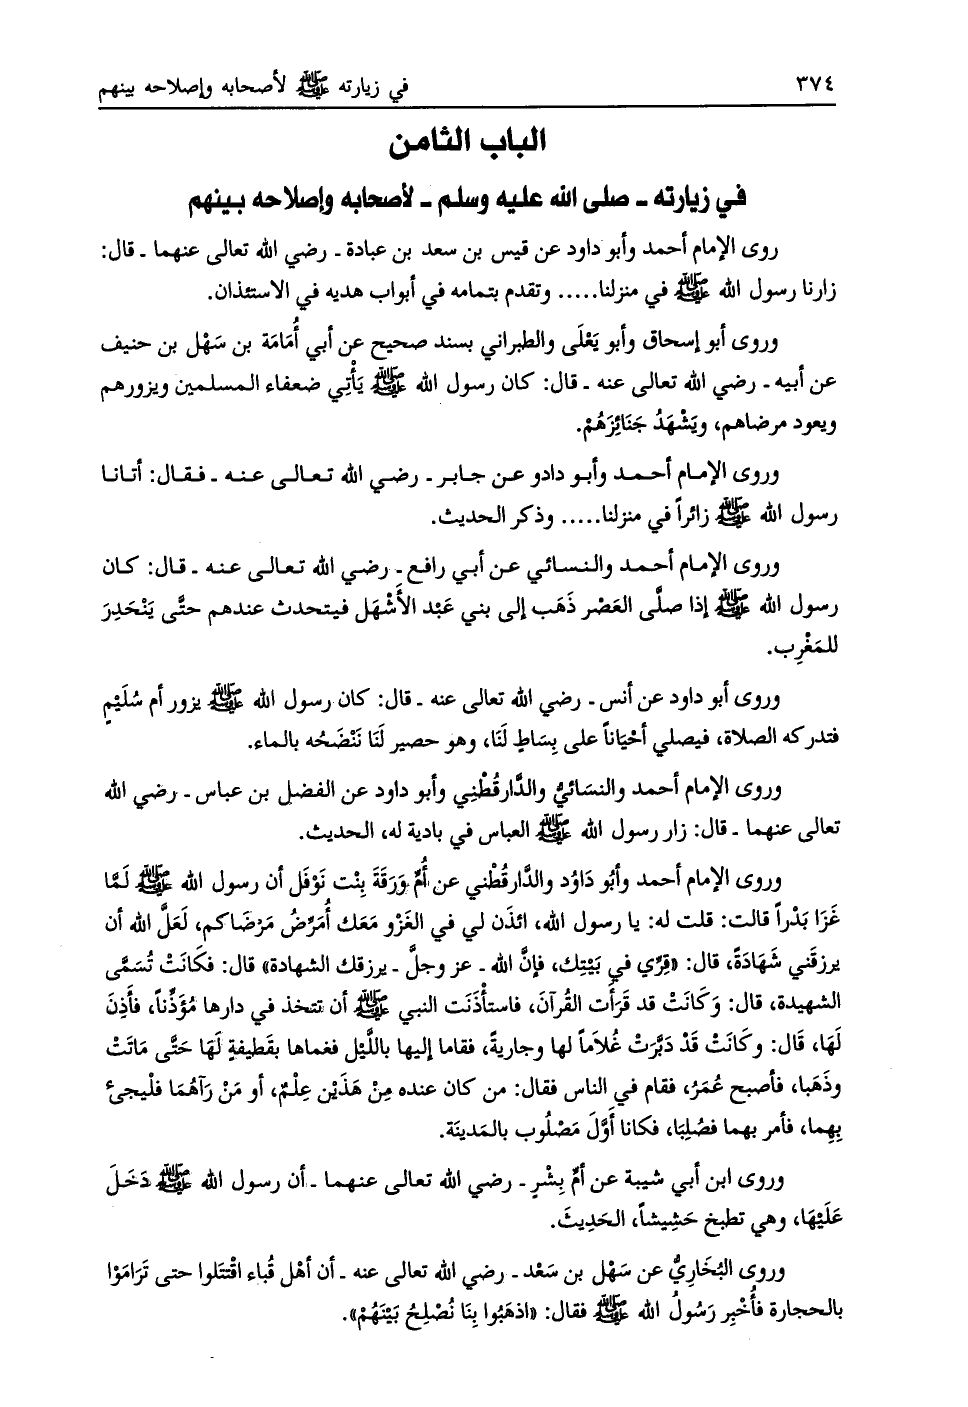 ٣٧٤
في زيارته ﷺ لأصحابه وإصلاحه بينهم
الباب الثامن
في زيارته ـ صلى الله عليه وسلم ـ لأصحابه وإصلاحه بينهم
روى الإمام أحمد وأبو داود عن قيس بن سعد بن عبادة ـ رضي الله تعالى عنهما ـ قال:
زارنا رسول الله ﷺ في منزلنا..... وتقدم بتمامه في أبواب هديه في الاستئذان.
وروى أبو إسحاق وأبو يَعْلَى والطبراني بسند صحيح عن أبي أُمَامَة بن سَهْل بن حنيف
عن أبيه ـ رضي الله تعالى عنه ـ قال: كان رسول الله ﷺ يَأْتِي ضعفاء المسلمين ويزورهم
ويعود مرضاهم، ويَشْهَدُ جَنَائِزَهُمْ.
وروى الإمام أحمد وأبو دادو عن جابر ـ رضي الله تعالى عنه ـ فقال: أتانا
رسول الله ﷺ زائراً في منزلنا..... وذكر الحديث.
وروى الإمام أحمد والنسائي عن أبي رافع ـ رضي الله تعالى عنه ـ قال: كان
رسول الله ﷺ إذا صلَّى العَصْر ذَهَب إلى بني عَبْد الأَشْهَل فيتحدث عندهم حتَّى يَنْحَدِرَ
للمَغْرِب.
وروى أبو داود عن أنس ـ رضي الله تعالى عنه ـ قال: كان رسول الله ﷺ يزور أم سُلَيْمٍ
فتدركه الصلاة، فيصلي أحْيَاناً على بِسَاطٍ لَنَا، وهو حصير لَنَا نَنْضَحُه بالماء.
وروى الإمام أحمد والنسَائيُّ والدَّارقُطْنِي وأبو داود عن الفضل بن عباس ـ رضي الله
تعالى عنهما ـ قال: زار رسول الله ﷺ العباس في بادية له، الحديث.
وروى الإمام أحمد وأبُو دَاوُد والدَّارقُطْني عن أُمِّ وَرَقَةَ بِنْت نَوْفَل أن رسول الله ﷺ لَمَّا
غَزَا بَدْراً قالت: قلت له: يا رسول الله، ائذَن لي في الغَزْو مَعَك أُمَرِّضُ مَرْضَاكم، لَعَلَّ الله أن
يرزقَني شَهَادَةً، قال: «قِرِّي في بَيْتِك، فإنَّ الله ـ عز وجلَّ ـ يرزقك الشهادة» قال: فكَانَتْ تُسَمَّى
الشهيدة، قال: وَكَانَتْ قد قَرَأَت القُرآنَ، فاستأْذَنَت النبي ﷺ أن تتخذ في دارها مُؤَذِّناً، فأَذِنَ
لَهَا، قَال: وكَانَتْ قَدْ دَبَّرَتْ غُلاَماً لها وجاريةً، فقاما إليها باللَّيْل فغماها بقَطيفةٍ لَهَا حَتَّى مَاتَتْ
وذَهَبا، فأصبح عُمَرُ، فقام في الناس فقال: من كان عنده مِنْ هَذَيْن عِلْمٌ، أو مَنْ رَآهُمَا فلْيجىءْ
بِهِما، فأمر بهما فصُلِبَا، فكانا أَوَّلَ مَصْلُوب بالمَدينَة.
وروى ابن أبي شيبة عن أمِّ بِشْرٍ ـ رضي الله تعالى عنهما ـ أن رسول الله ﷺ دَخَلَ
عَلَيْهَا، وهي تطبخ حَشِيشاً، الحَدِيثَ.
وروى البُخَارِيُّ عن سَهْل بن سَعْد ـ رضي الله تعالى عنه ـ أن أهْل قُباء اقْتَتَلوا حتى تَرَامَوْا
بالحجارة فأُخْبِر رَسُولُ الله ﷺ فقال: «اذهَبُوا بِنَا نُصْلِحُ بَيْنَهُمْ».